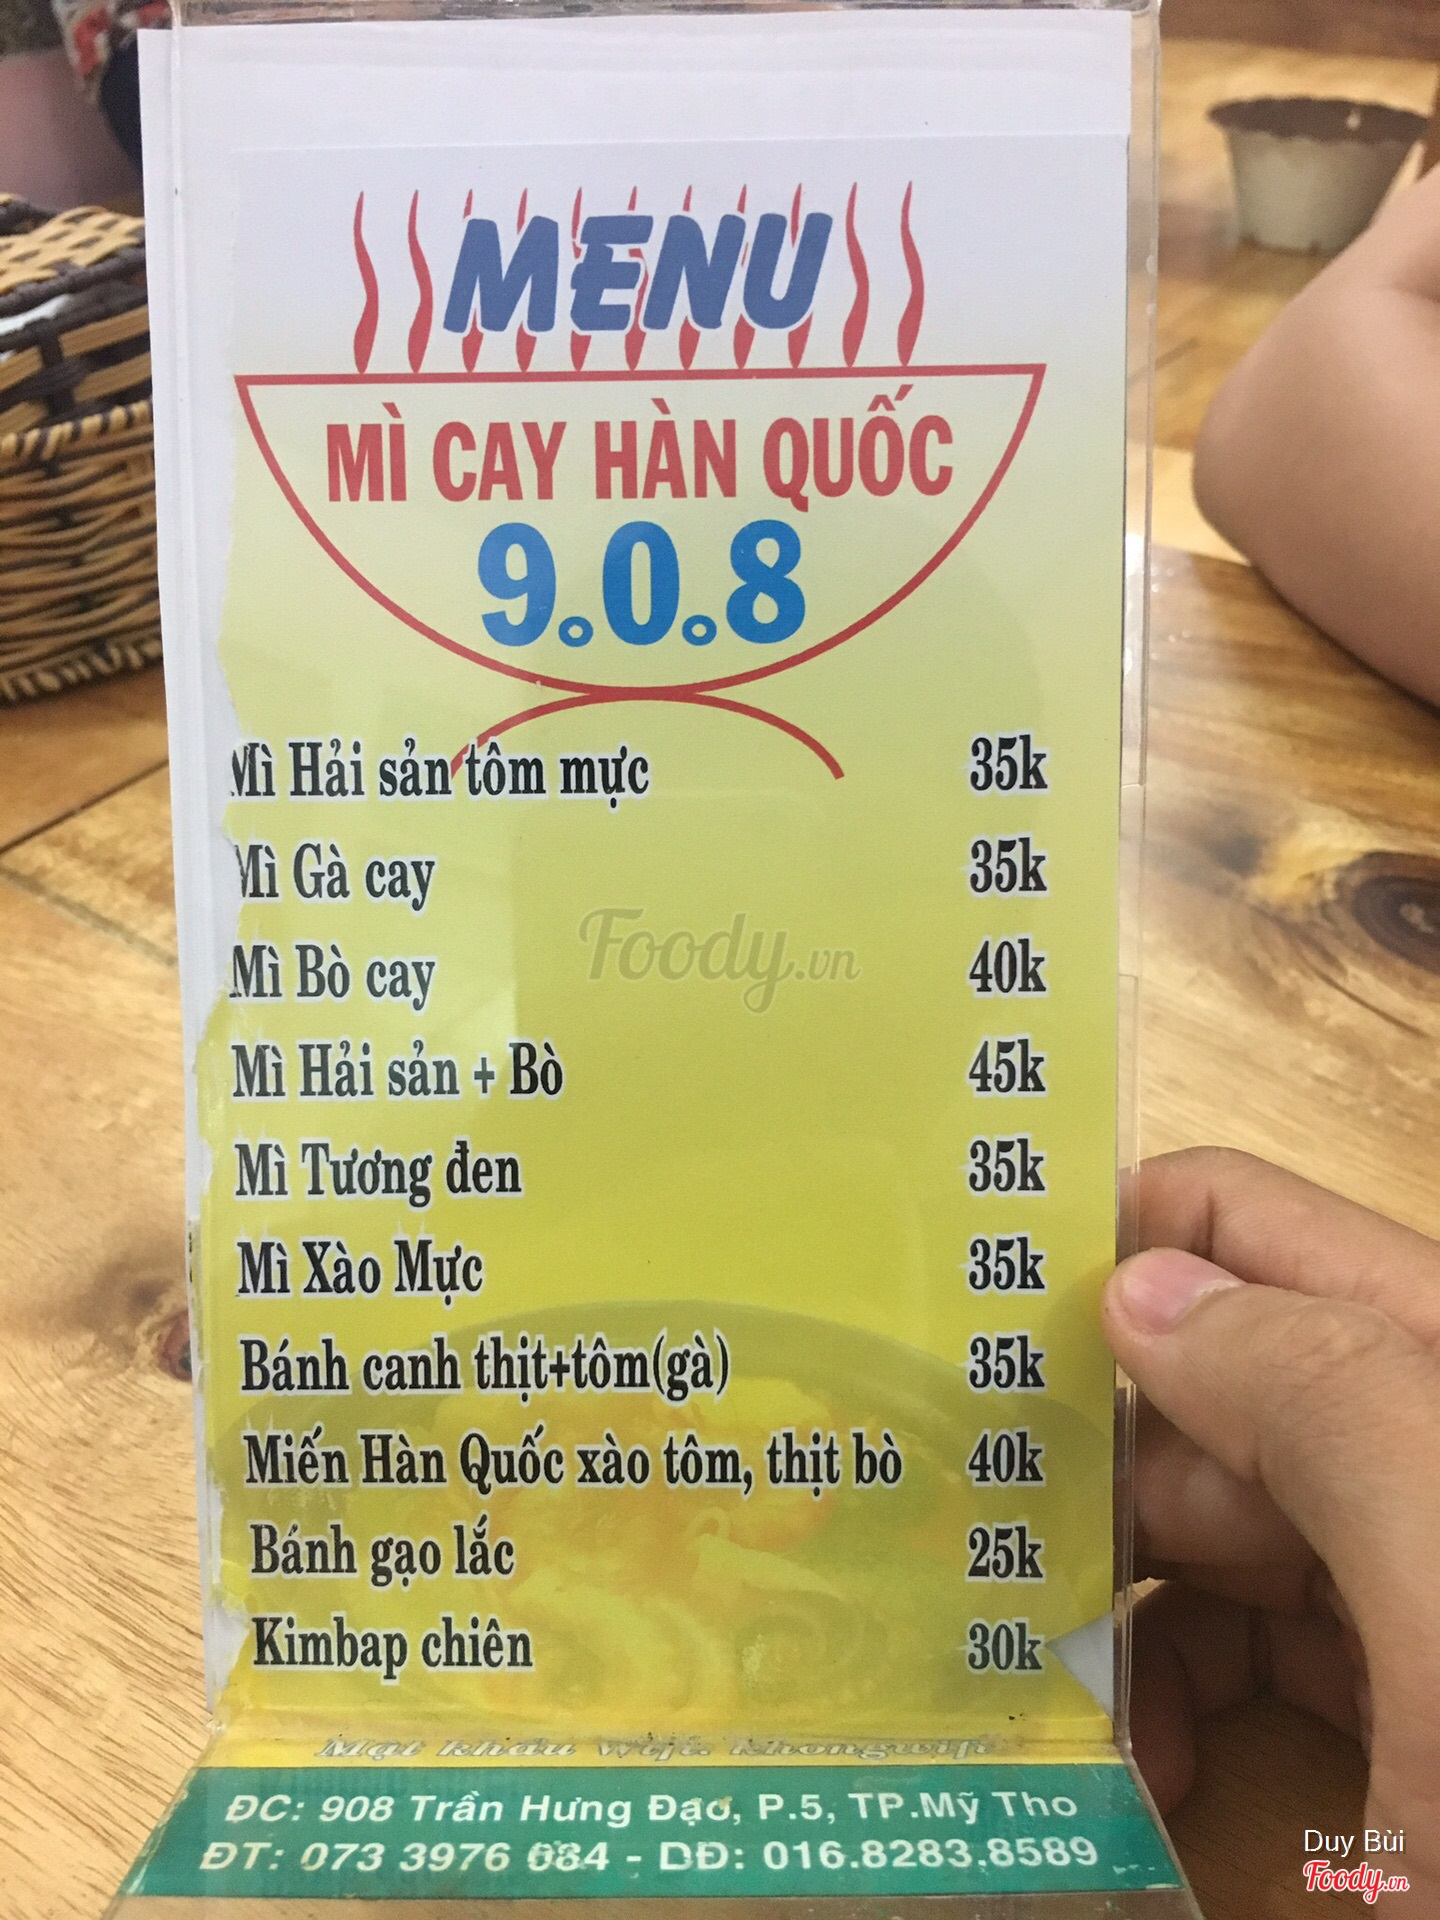 MENU
MÌ CAY HÀN QUỐC
9.0.8
Mì Hải sản tôm mực 35k
Mì Gà cay 35k
Mì Bò cay 40k
Mì Hải sản + Bò 45k
Mì Tương đen 35k
Mì Xào Mực 35k
Bánh canh thịt+tôm(gà) 35k
Miến Hàn Quốc xào tôm, thịt bò 40k
Bánh gạo lắc 25k
Kimbap chiên 30k
Mật khẩu Wifi: khongwifi
ĐC: 908 Trần Hưng Đạo, P.5, TP.Mỹ Tho
ĐT: 073 3976 084 - DĐ: 016.8283.8589
Foody.vn
Duy Bùi
Foody.vn